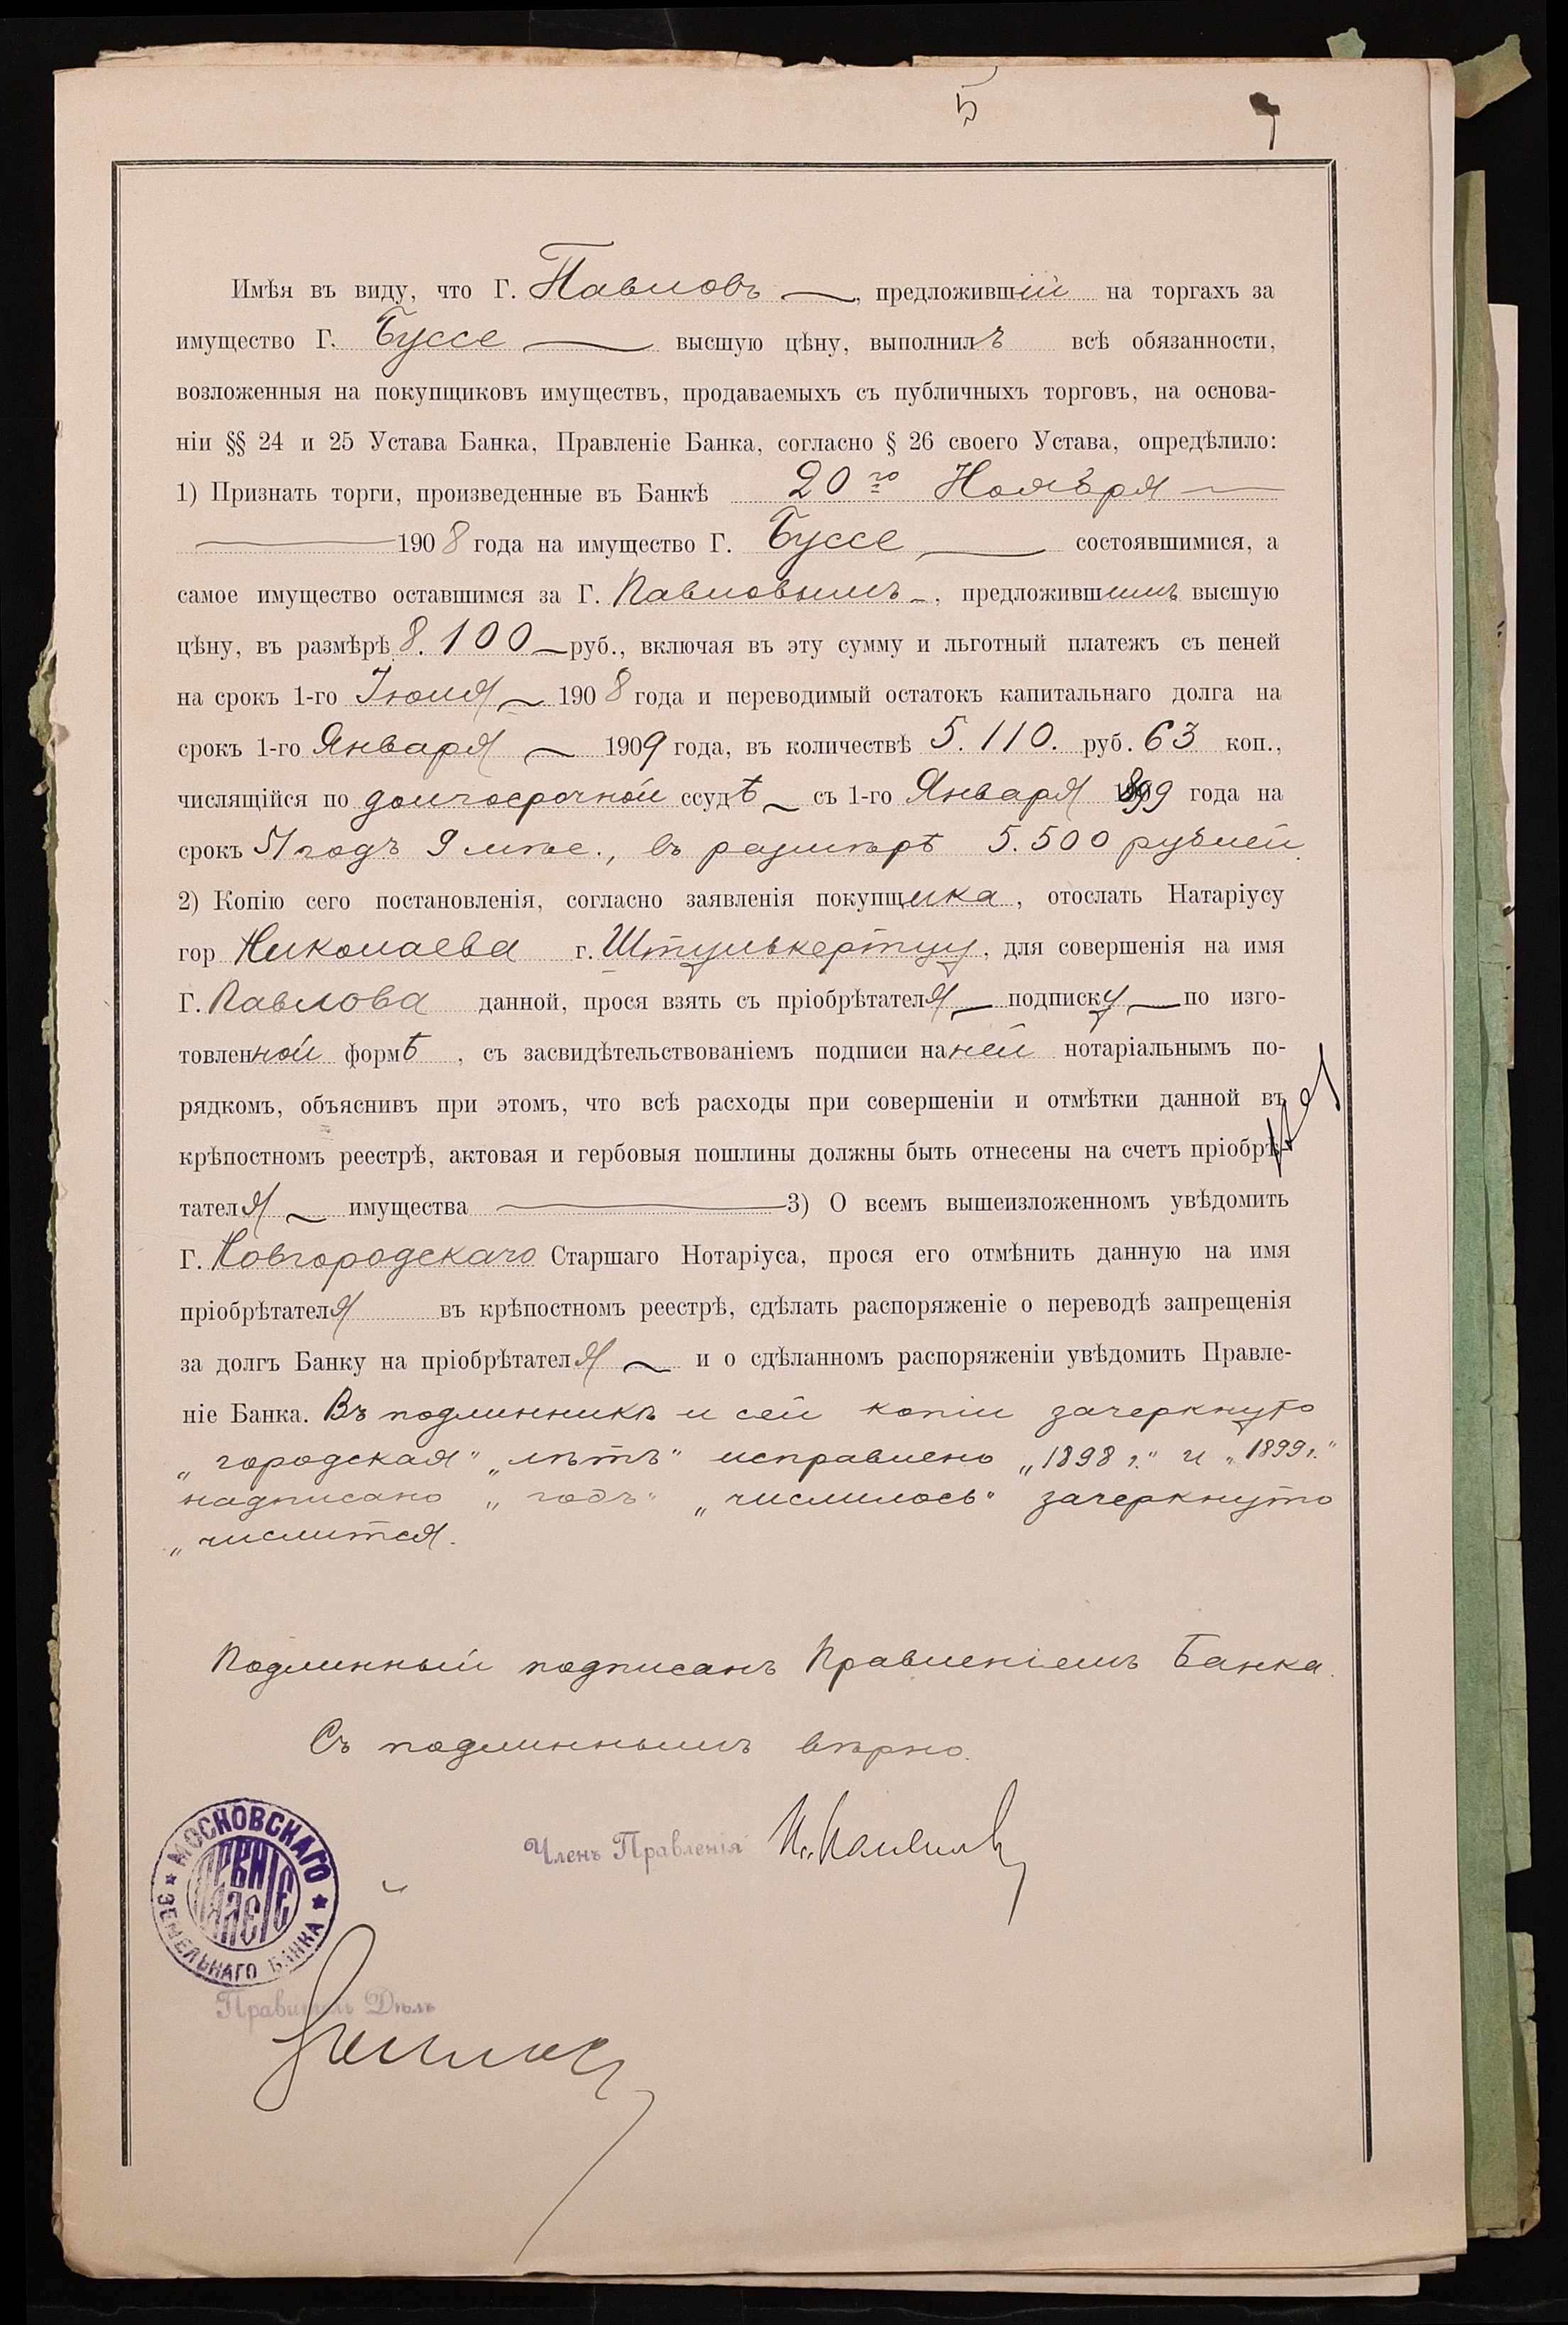 5
Имѣя въ виду, что Г. Павловъ, предложившій на торгахъ за
имущество Г. Буссе высшую цѣну, выполнилъ всѣ обязанности,
возложенныя на покупщиковъ имуществъ, продаваемыхъ съ публичныхъ торговъ, на основа-
ніи §§ 24 и 25 Устава Банка, Правленіе Банка, согласно § 26 своего Устава, опредѣлило:
1) Признать торги, произведенные въ Банкѣ 20го Ноября
1908 года на имущество Г. Буссе состоявшимися, а
самое имущество оставшимся за Г. Павловымъ, предложившимъ высшую
цѣну, въ размѣрѣ 8.100 руб., включая въ эту сумму и льготный платежъ съ пеней
на срокъ 1-го Іюля 1908 года и переводимый остатокъ капитальнаго долга на
срокъ 1-го Января 1909 года, въ количествѣ 5.110. руб. 63 коп.,
числящійся по долгосрочной ссудѣ съ 1-го Января 1899 года на
срокъ 51 годъ 9 мѣс., въ размѣрѣ 5.500 рублей.
2) Копію сего постановленія, согласно заявленія покупщика, отослать Натаріусу
гор Николаева г. Штулькертцу, для совершенія на имя
Г. Павлова данной, прося взять съ пріобрѣтателя подписку по изго-
товленной формѣ, съ засвидѣтельствованіемъ подписи на ней нотаріальнымъ по-
рядкомъ, объяснивъ при этомъ, что всѣ расходы при совершеніи и отмѣтки данной въ
крѣпостномъ реестрѣ, актовая и гербовыя пошлины должны быть отнесены на счетъ пріобрѣ-
тателя имущества 3) О всемъ вышеизложенномъ увѣдомить
Г. Новгородскаго Старшаго Нотаріуса, прося его отмѣнить данную на имя
пріобрѣтателя въ крѣпостномъ реестрѣ, сдѣлать распоряженіе о переводѣ запрещенія
за долгъ Банку на пріобрѣтателя и о сдѣланномъ распоряженіи увѣдомить Правле-
ніе Банка. Въ подлинникѣ и сей копіи зачеркнуто
„городская" „лѣтъ" исправлено „1898 г." и „1899 г."
надписано „годъ" „числилось" зачеркнуто
„числится.
Подлинный подписанъ Правленіемъ Банка.
Съ подлиннымъ вѣрно.
Членъ Правленія
МОСКОВСКАГО ЗЕМЕЛЬНАГО БАНКА
Правитель Дѣлъ